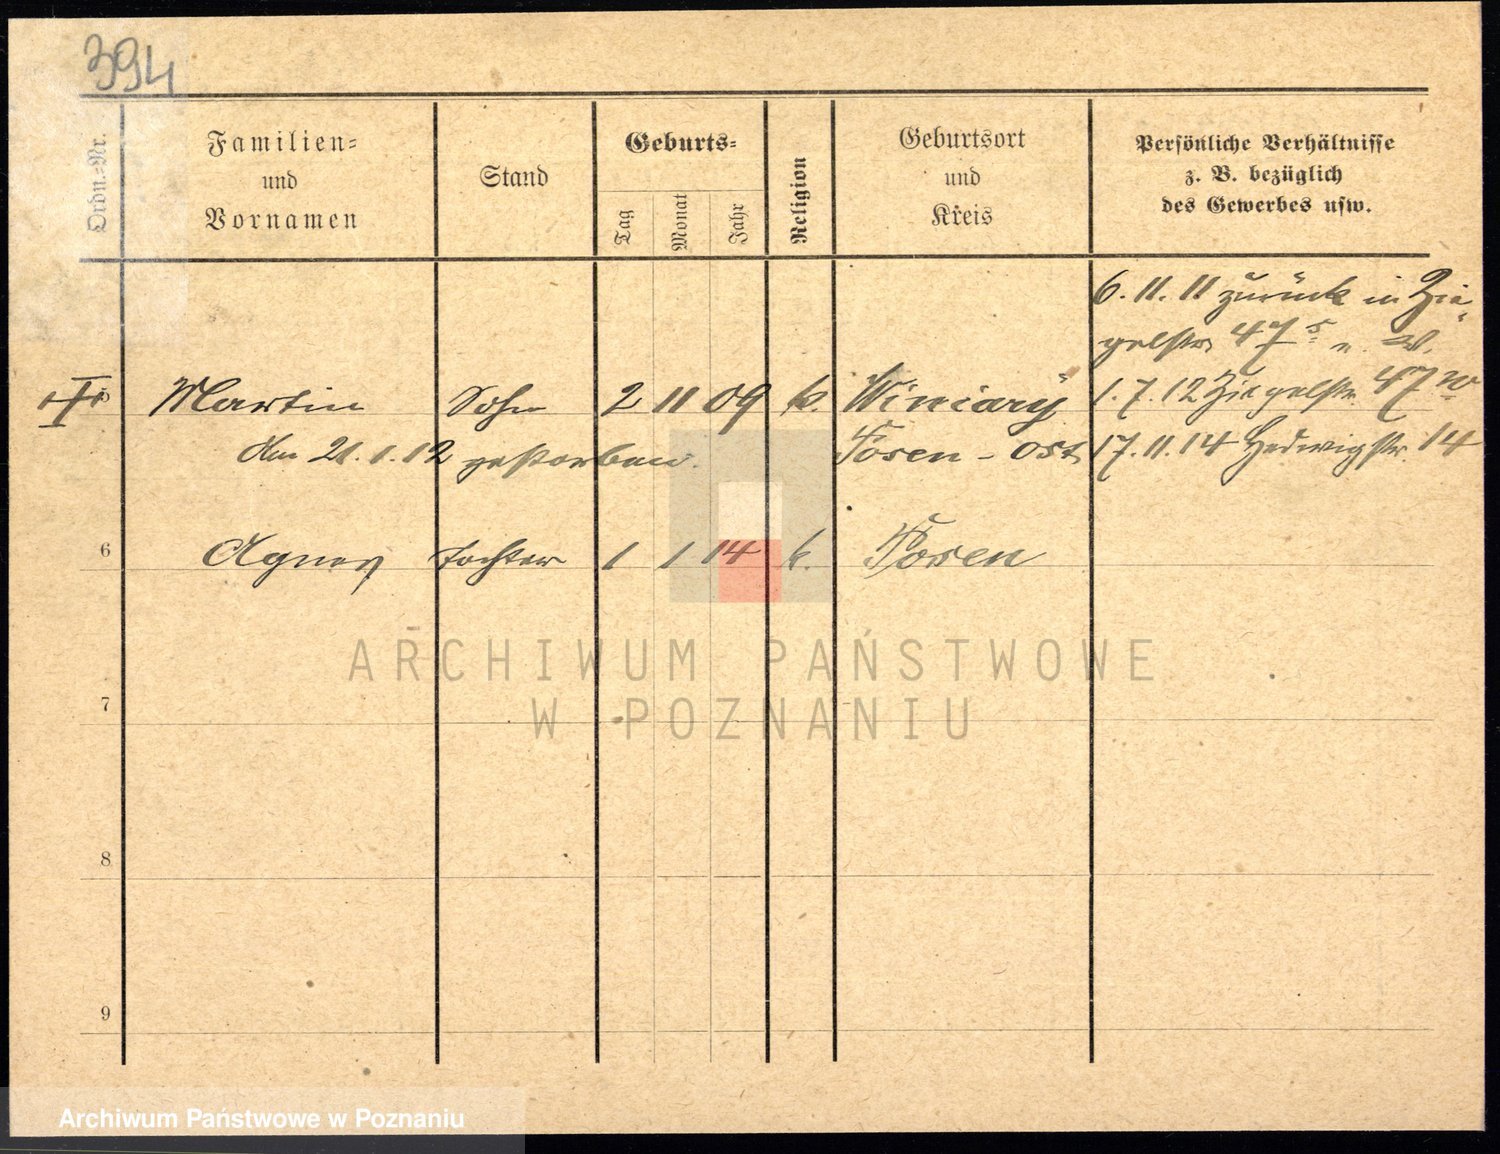 394
Ordn.-Nr.
Familien-
und
Vornamen
Stand
Geburts-
Tag
Monat
Jahr
Religion
Geburtsort
und
Kreis
Persönliche Verhältnisse
z. B. bezüglich
des Gewerbes usw.
6. 11. 11 zurück in Zie-
gelstr. 47
5 Martin Sohn 2 11 09 k. Winiary 1. 7. 12 Ziegelstr. 47
Am 21. 1. 12 gestorben. Posen-Ost 17. 11. 14 Hedwigstr. 14
6 Agnes Tochter 1 1 14 k. Posen
ARCHIWUM PAŃSTWOWE
7
W POZNANIU
8
9
Archiwum Państwowe w Poznaniu